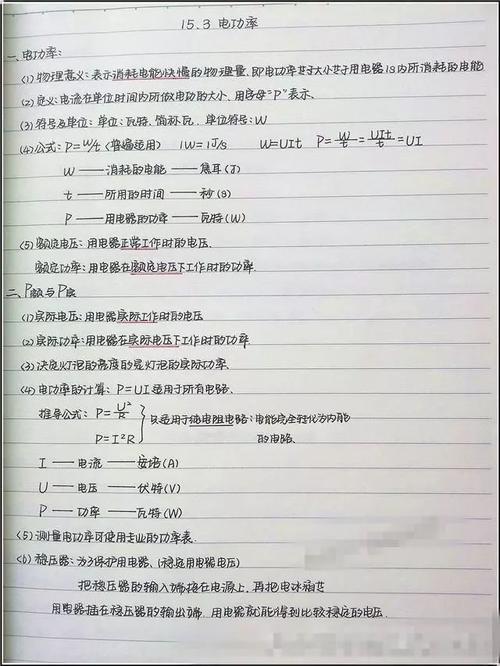 15.3 电功率
一、电功率:
(1)物理意义: 表示消耗电能快慢的物理量, 即电功率等于大小等于用电器1s内所消耗的电能
(2)定义: 电流在单位时间内所做电功的大小. 用字母"P"表示.
(3)符号及单位: 单位: 瓦特. 简称瓦. 单位符号: W
(4)公式: P=W/t (普遍适用) 1W=1J/s W=UIt P=W/t=UIt/t=UI
W —— 消耗的电能 —— 焦耳(J)
t —— 所用的时间 —— 秒(s)
P —— 用电器的功率 —— 瓦特(W)
(5)额定电压: 用电器正常工作时的电压.
额定功率: 用电器在额定电压下工作时的功率.
二、P额与P实
(1)实际电压: 用电器实际工作时的电压
(2)实际功率: 用电器在实际电压下工作时的功率
(3)决定灯泡的亮度的是灯泡的实际功率.
(4)电功率的计算: P=UI 适用于所有电路.
推导公式: P=U²/R
P=I²R
只适用于纯电阻电路: 电能完全转化为内能
的电路.
I —— 电流 —— 安培(A)
U —— 电压 —— 伏特(V)
P —— 功率 —— 瓦特(W)
(5)测量电功率可使用专业的功率表.
(6)稳压器: 为了保护用电器、(稳定用电器电压)
把稳压器的输入端接在电源上, 再把电冰箱等
用电器插在稳压器的输出端, 用电器就能得到比较稳定的电压.